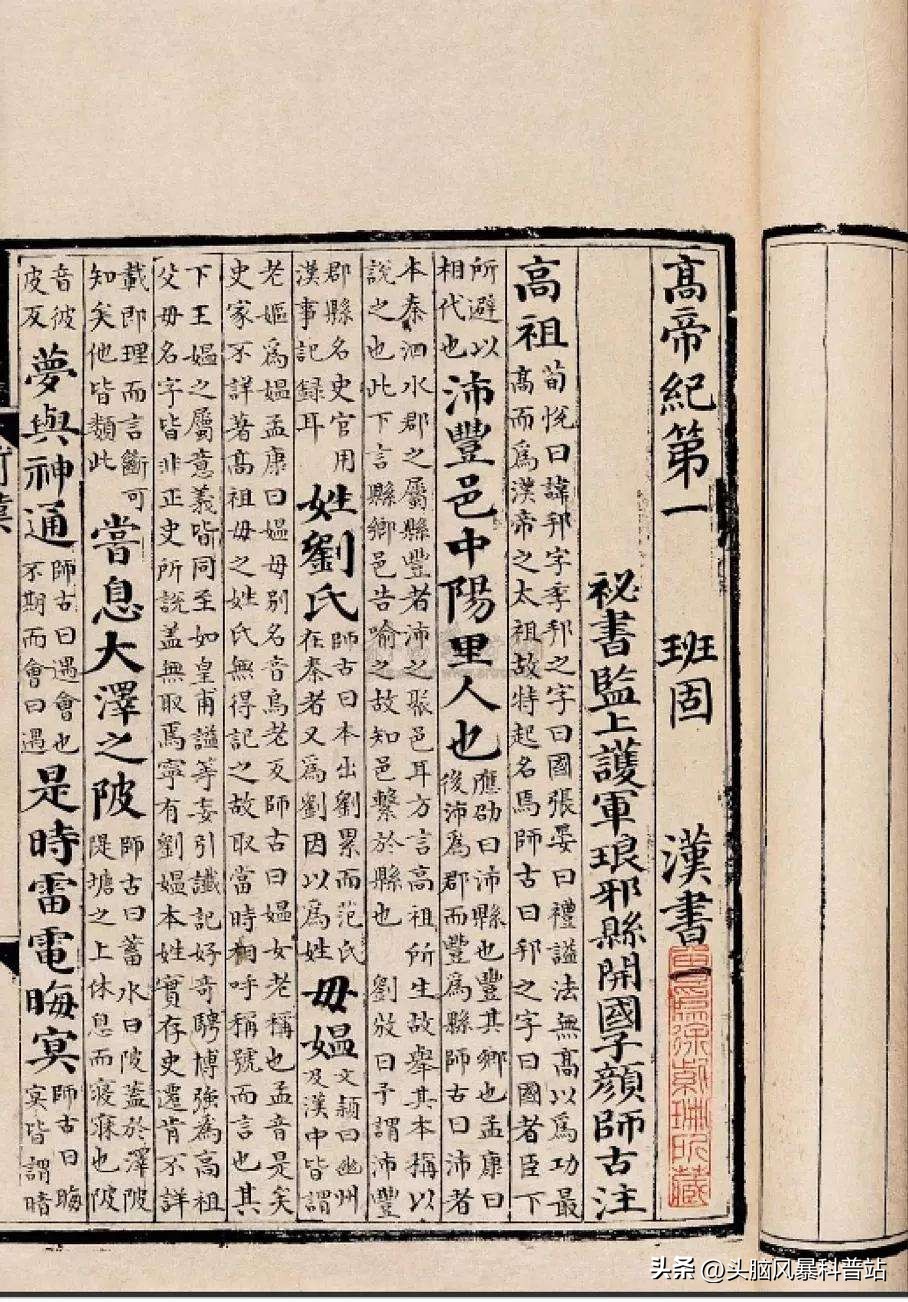 高帝紀第一 班固 漢書一
祕書監上護軍琅邪縣開國子顏師古注
高祖
荀悅曰諱邦字季邦之字曰國張晏曰禮謚法無高以為功最
高而爲漢帝之太祖故特起名焉師古曰邦之字曰國者臣下
所避以
相代也
沛豐邑中陽里人也
應劭曰沛縣也豐其鄉也孟康曰
後沛爲郡而豐爲縣師古曰沛者
本秦泗水郡之屬縣豐者沛之聚邑耳方言高祖所生故舉其本稱以
說之也此下言縣鄉邑告喻之故知邑繫於縣也 劉攽曰予謂沛豐
郡縣名史官用
漢事記録耳
姓劉氏
師古曰本出劉累而范氏
在秦者又爲劉因以爲姓
母媼
文穎曰幽州
及漢中皆謂
老嫗爲媼孟康曰媼母別名音烏老反師古曰媼女老稱也孟音是矣
史家不詳著高祖母之姓氏無得記之故取當時相呼稱號而言也其
下王媼之屬意義皆同至如皇甫謐等妄引讖記好奇騁博強為高祖
父母名字皆非正史所說蓋無取焉寧有劉媼本姓實存史遷肯不詳
載即理而言斷可
知矣他皆類此
嘗息大澤之陂
師古曰蓄水曰陂蓋於澤陂
隄塘之上休息而寢寐也陂
音彼
皮反
夢與神通
師古曰遇會也
不期而會曰遇
是時雷電晦冥
師古曰晦
冥皆謂暗
头条 @头脑风暴科普站